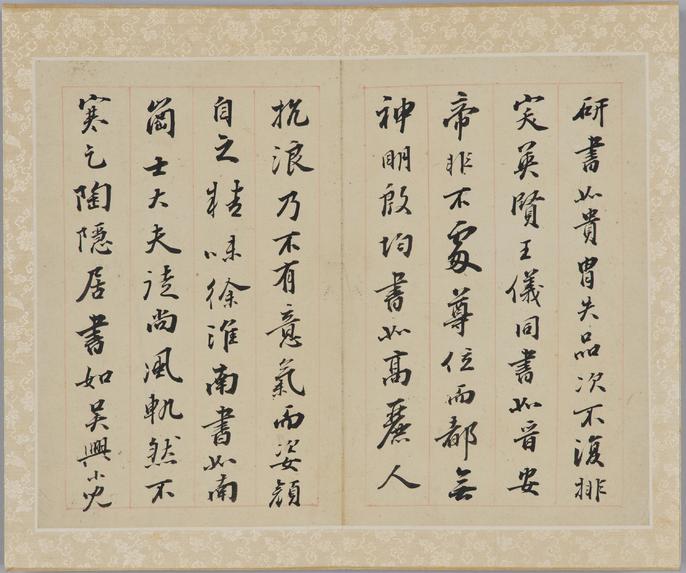 研書如貴胄失品次不復排
突英賢王儀同書如晉安
帝非不處尊位而都無
神明殷均書如高麗人
抗浪乃不有意氣而姿顏
自乏精味徐淮南書如南
岡士大夫徒尚風軌然不
寒乞陶隱居書如吳興小兒